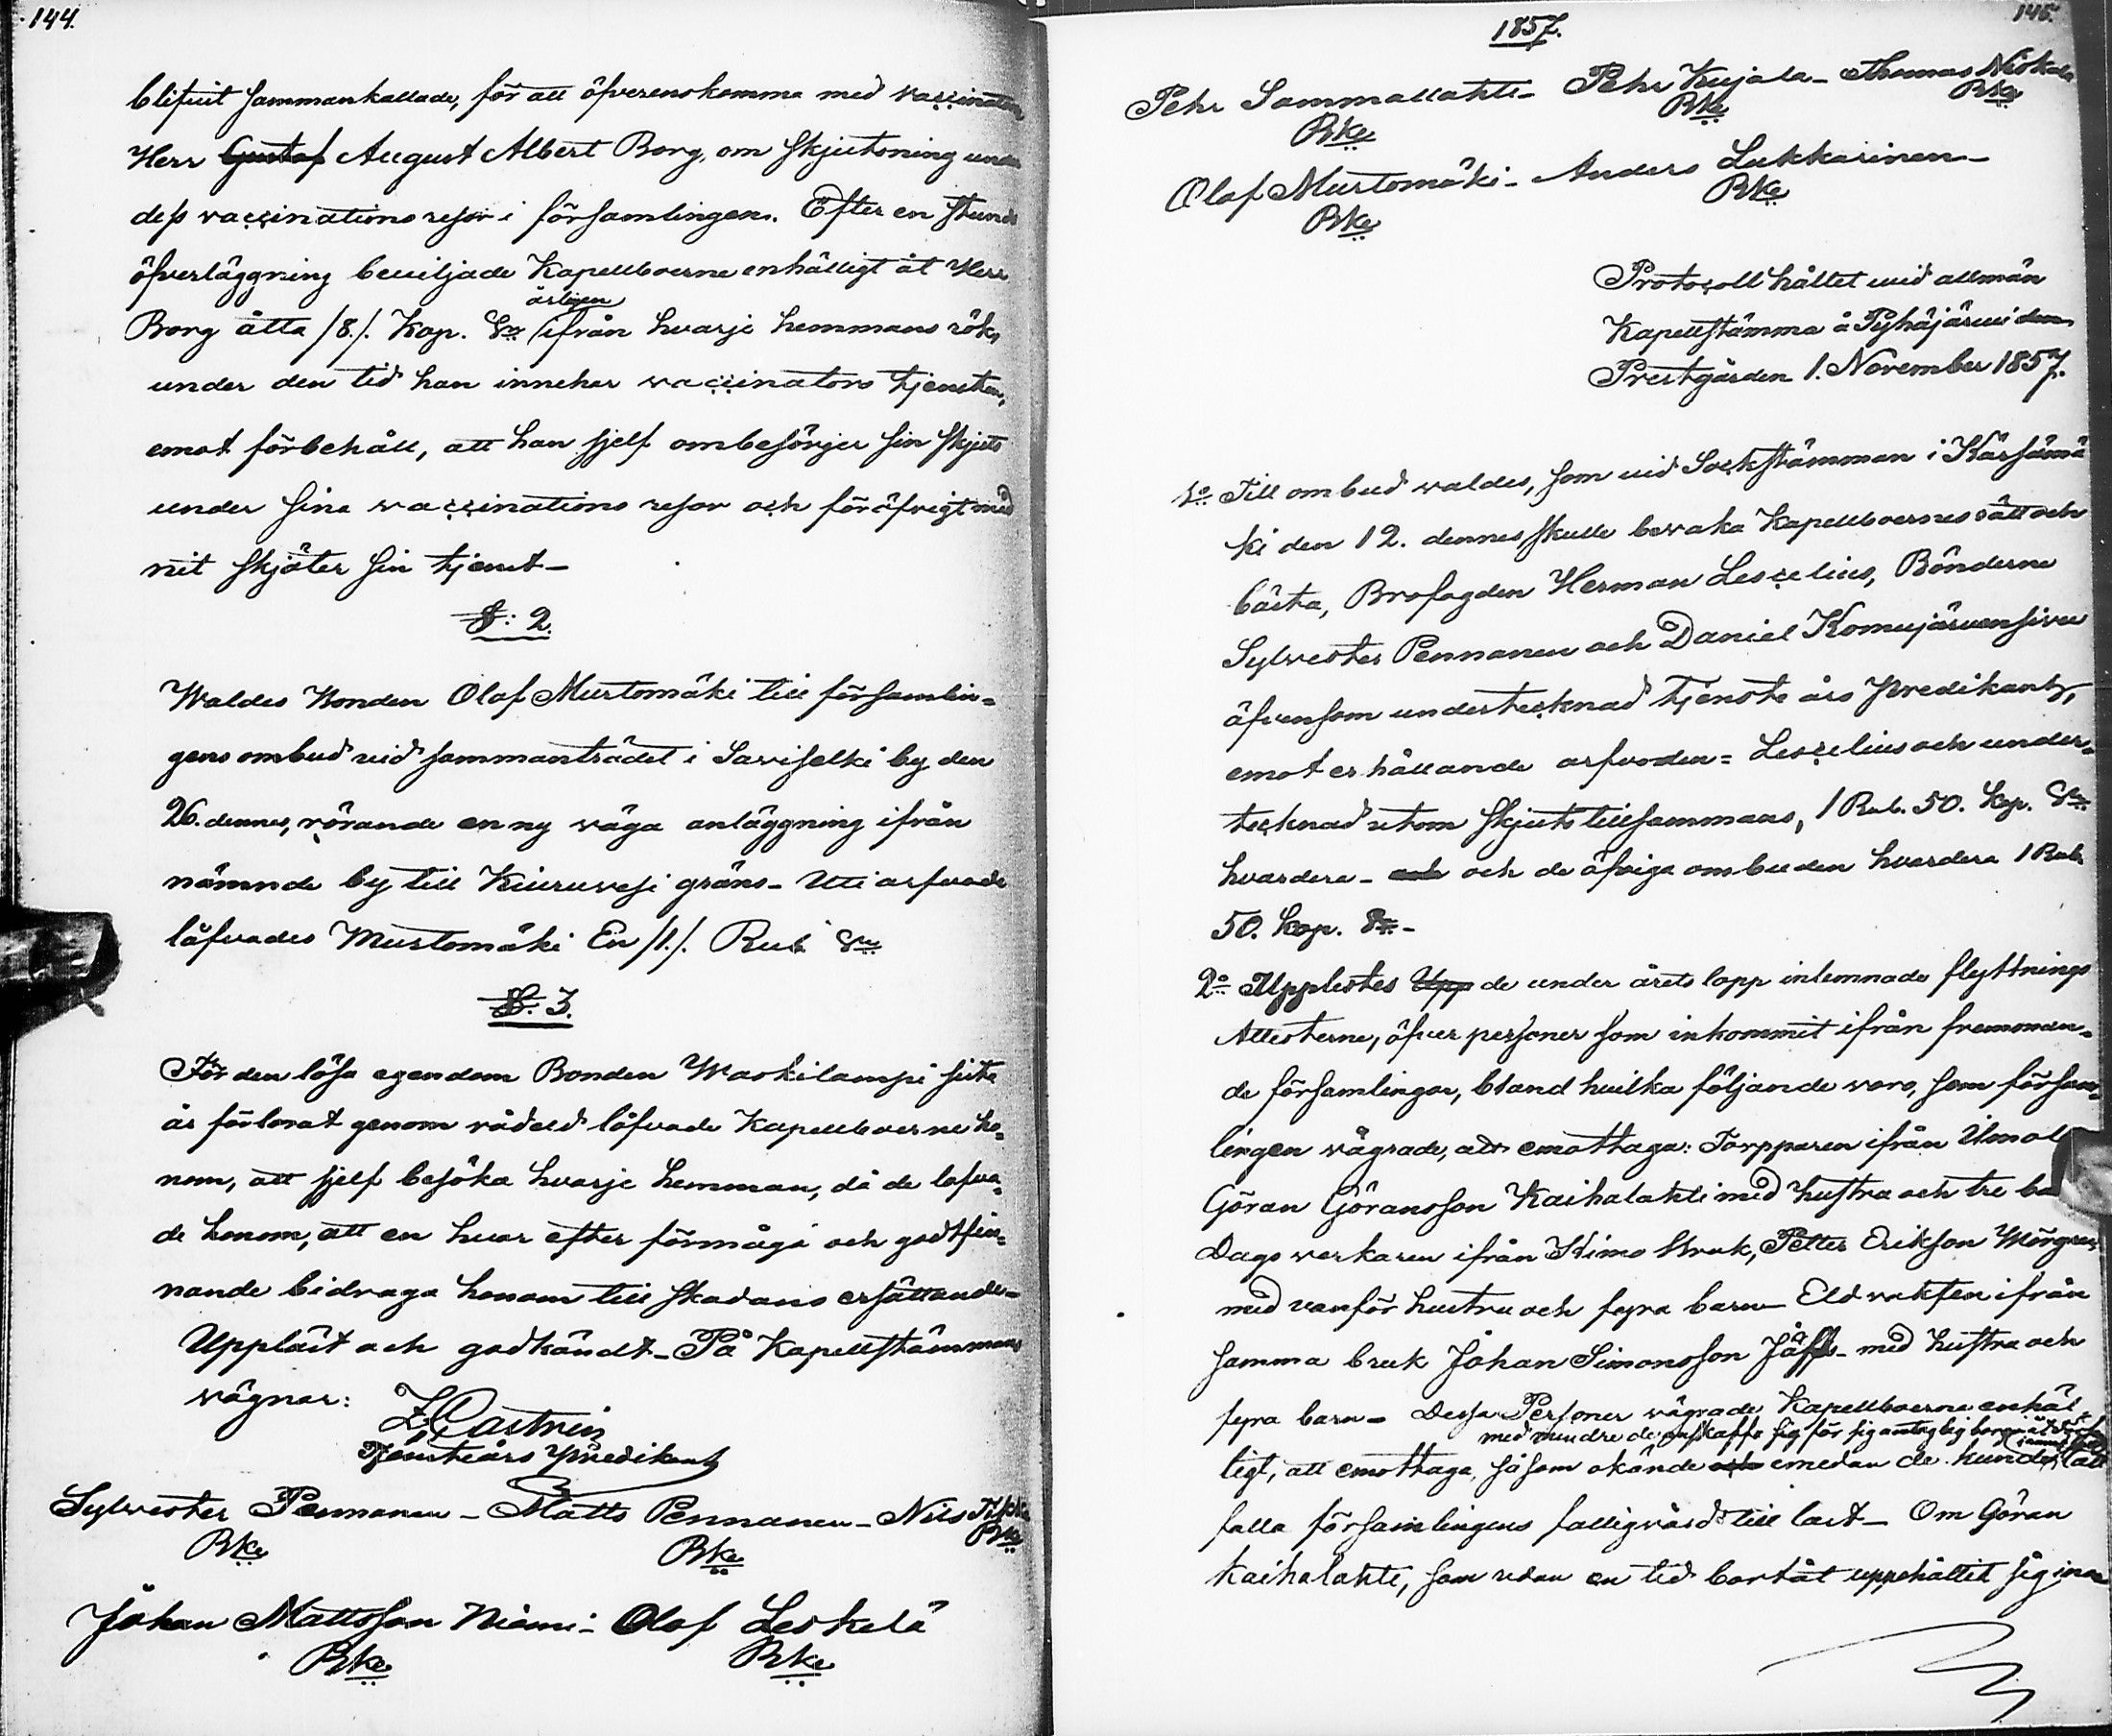 144.
blifvit sammankallade, för att öfverenskomma med vaccinatorn
Herr Gustaf August Albert Borg, om skjutsning under
dess vaccinations resor i församlingen. Efter en stunds
öfverläggning beviljade Kapellboerne enhälligt åt Herr
årligen
Borg åtta /8./. Kop. Sr ifrån hvarje hemmans rök,
under den tid han innehar vaccinators tjensten,
emot förbehåll, att han sjelf ombesörjer sin skjuts
under sina vaccinations resor och föröfrigt med
nit skjöter sin tjenst_
§: 2.
Waldes Bonden Olof Murtomäki till församlin=
gens ombud vid sammanträdet i Saviselki by den
26. dennes, rörande en ny väga anläggning ifrån
nämnde by till Kiuruvesi gräns_ Uti arfvode
låfvades Murtomäki En /1./. Rub Sr
§. 3.
För den lösa egendom Bonden Waskilampi sista
år förlorat genom vådeld låfvade Kapellboerne ho=
nom, att sjelf besöka hvarje hemman, då de lofva=
de honom, att en hvar efter förmåga och godtfin=
nande bidraga honom till skadans ersättande_
Uppläst och godkändt_ På Kapellstämmans
vägnar:
Z. Castrén
Tjensteårs Predikant
Sylvester Pennanen _ Matts Pennanen _ Nils
Bke Bke Bke
Johan Mattsson Niemi _ Olof Leskelä
Bke Bke
1857.
145.
Pehr Sammallahti _ Pehr Kujala _ Thomas Niskala
Bke Bke Bke
Olof Murtomäki _ Anders Lukkarinen _
Bke Bke
Protocoll hållet vid allmän
Kapellstämma å Pyhäjärvi den
Prestgården 1. November 1857.
1o Till ombud waldes, som vid Sockstämman i Kärsämä
ki den 12. dennes skulle bevaka Kapellboernes rätt och
bästa, Brofogden Herman Lescelius, Bönderne
Sylvester Pennanen och Daniel Komujärvensivu
äfvensom undertecknad tjenste års Predikant,
emot erhållande arfvoden = Lescelius och under=
tecknad utom skjuts tillsammans, 1 Rub. 50. Kop. Sr
hvardera _ och och de öfriga ombuden hvardera 1 Rub
50. Kop. Sr _
2o Upplestes Upp de under årets lopp inlemnade flyttnings
Attesterne, öfver personer som inkommit ifrån fremman=
de församlingar, bland hvilka följande voro, som försam=
lingen vägrade, att emottaga: Torpparen ifrån
Göran Göransson Kaihalahti med hustru och tre
Dagsverkaren ifrån Kimo bruk, Petter Erikson
med vanför hustru och fyra barn _ Eldvakten ifrån
samma bruk Johan Simonsson _ med hustru och
fyra barn _ Dessa Personer vägrade Kapellboerne enhäl=
med mindre de anskaffa sig för sig antaglig borgen
ligt, att emottaga, såsom okände och emedan de kunde, att
falla församlingens fattigvård till last _ Om Göran
Kaihalahti, som redan en tid bortåt uppehållit sig inom